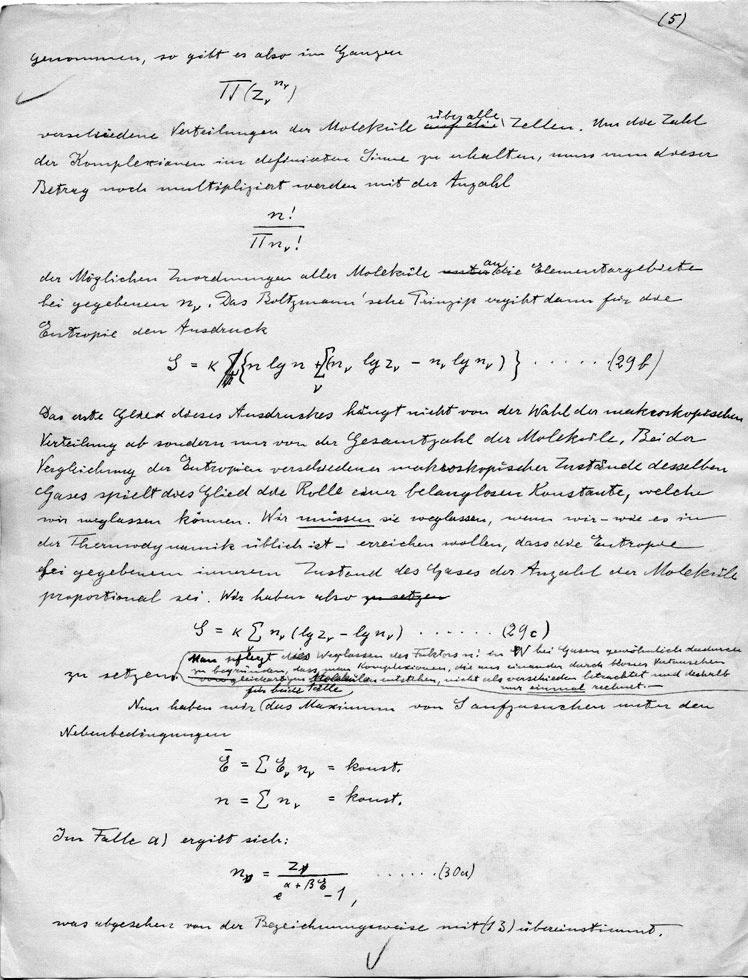 (5)
genommen, so gibt es also im Ganzen
Π(z_ν^{n_ν})
verschiedene Verteilungen der Moleküle über alle Zellen. Um die Zahl
der Komplexionen im definierten Sinne zu erhalten, muss nun dieser
Betrag noch multipliziert werden mit der Anzahl
n! / Πn_ν!
der Möglichen Zuordnungen aller Moleküle an die Elementargebiete
bei gegebenen n_ν. Das Boltzmann'sche Prinzip ergibt dann für die
Entropie den Ausdruck
S = κ {n lg n + Σ_ν (n_ν lg z_ν - n_ν lg n_ν)} ...... (29b)
Das erste Glied dieses Ausdruckes hängt nicht von der Wahl der makroskopischen
Verteilung ab sondern nur von der Gesamtzahl der Moleküle. Bei der
Vergleichung der Entropien verschiedener makroskopischer Zustände desselben
Gases spielt dies Glied die Rolle einer belanglosen Konstante, welche
wir weglassen können. Wir müssen sie weglassen, wenn wir - wie es in
der Thermodynamik üblich ist - erreichen wollen, dass die Entropie
bei gegebenem innerem Zustand des Gases der Anzahl der Moleküle
proportional sei. Wir haben also zu setzen
S = κ Σ n_ν (lg z_ν - lg n_ν) ....... (29c)
zu setzen.
Man pflegt dies Weglassen des Faktors n! in W bei Gasen gewöhnlich dadurch
zu begründen, dass man Komplexionen, die aus einander durch blosses Vertauschen
von gleichartigen Molekülen entstehen, nicht als verschieden betrachtet und deshalb
nur einmal rechnet. -
für beide Fälle
Nun haben wir das Maximum von S aufzusuchen unter den
Nebenbedingungen
Ē = Σ E_ν n_ν = konst.
n = Σ n_ν = konst.
Im Falle a) ergibt sich:
n_ν = z_ν / (e^{α+βE} - 1), ...... (30a)
was abgesehen von der Bezeichnungsweise mit (13) übereinstimmt.